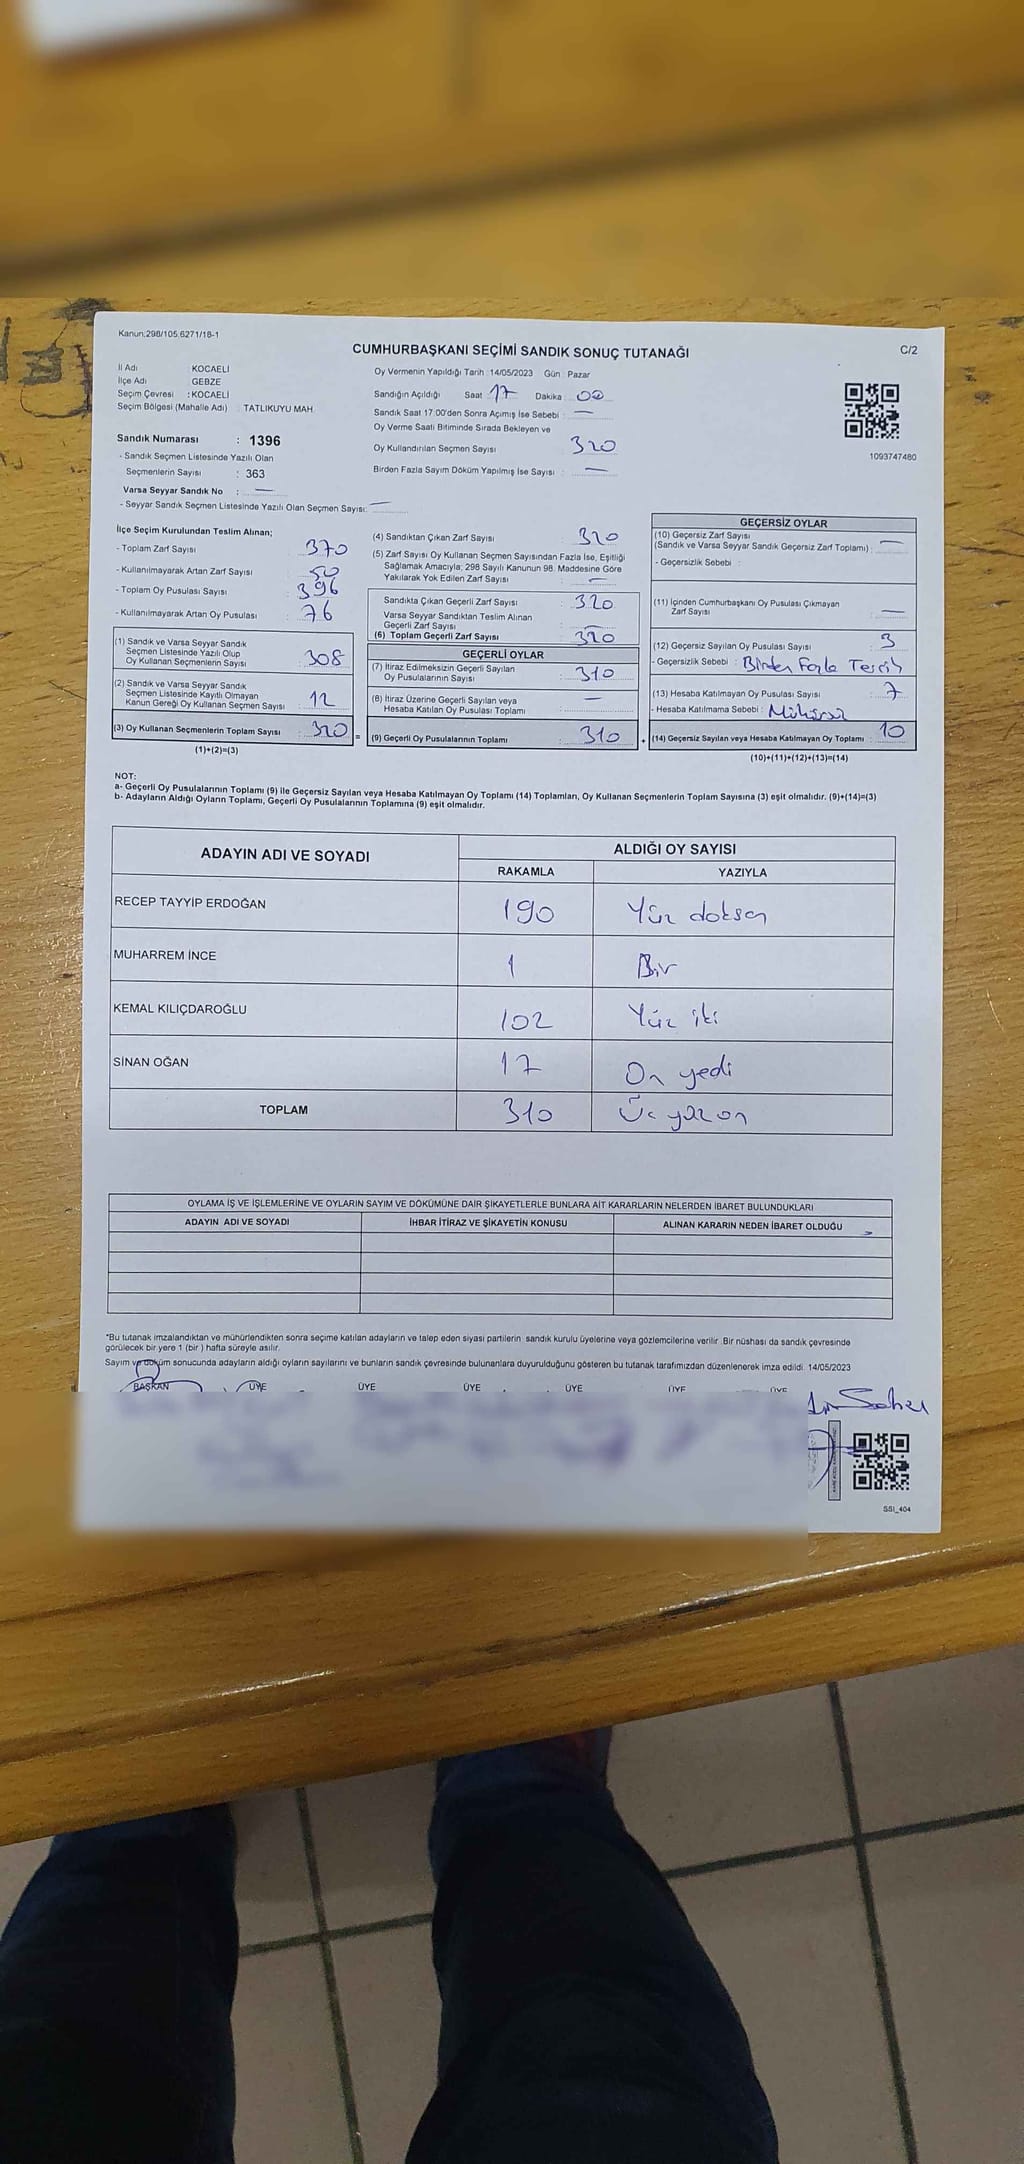 Kanun:298/105,6271/18-1
CUMHURBAŞKANI SEÇİMİ SANDIK SONUÇ TUTANAĞI
C/2
İl Adı KOCAELİ
İlçe Adı GEBZE
Seçim Çevresi : KOCAELİ
Seçim Bölgesi (Mahalle Adı) : TATLIKUYU MAH.
Sandık Numarası : 1396
- Sandık Seçmen Listesinde Yazılı Olan
Seçmenlerin Sayısı : 363
Varsa Seyyar Sandık No : —
- Seyyar Sandık Seçmen Listesinde Yazılı Olan Seçmen Sayısı: —
Oy Vermenin Yapıldığı Tarih : 14/05/2023 Gün : Pazar
Sandığın Açıldığı Saat : 17 Dakika : 00
Sandık Saat 17:00'den Sonra Açımış İse Sebebi : —
Oy Verme Saati Bitiminde Sırada Bekleyen ve
Oy Kullandırılan Seçmen Sayısı 320
Birden Fazla Sayım Döküm Yapılmış İse Sayısı : —
1093747480
İlçe Seçim Kurulundan Teslim Alınan;
- Toplam Zarf Sayısı 370
- Kullanılmayarak Artan Zarf Sayısı 50
- Toplam Oy Pusulası Sayısı 396
- Kullanılmayarak Artan Oy Pusulası 76
(1) Sandık ve Varsa Seyyar Sandık
Seçmen Listesinde Yazılı Olup
Oy Kullanan Seçmenlerin Sayısı : 308
(2) Sandık ve Varsa Seyyar Sandık
Seçmen Listesinde Kayıtlı Olmayan
Kanun Gereği Oy Kullanan Seçmen Sayısı : 12
(3) Oy Kullanan Seçmenlerin Toplam Sayısı : 320
(1)+(2)=(3)
=
(4) Sandıktan Çıkan Zarf Sayısı : 320
(5) Zarf Sayısı Oy Kullanan Seçmen Sayısından Fazla İse, Eşitliği
Sağlamak Amacıyla; 298 Sayılı Kanunun 98. Maddesine Göre
Yakılarak Yok Edilen Zarf Sayısı : —
Sandıkta Çıkan Geçerli Zarf Sayısı : 320
Varsa Seyyar Sandıktan Teslim Alınan
Geçerli Zarf Sayısı : —
(6) Toplam Geçerli Zarf Sayısı : 320
GEÇERLİ OYLAR
(7) İtiraz Edilmeksizin Geçerli Sayılan
Oy Pusulalarının Sayısı : 310
(8) İtiraz Üzerine Geçerli Sayılan veya
Hesaba Katılan Oy Pusulası Toplamı : —
(9) Geçerli Oy Pusulalarının Toplamı : 310
+
GEÇERSİZ OYLAR
(10) Geçersiz Zarf Sayısı
(Sandık ve Varsa Seyyar Sandık Geçersiz Zarf Toplamı) : —
- Geçersizlik Sebebi :
(11) İçinden Cumhurbaşkanı Oy Pusulası Çıkmayan
Zarf Sayısı : —
(12) Geçersiz Sayılan Oy Pusulası Sayısı : 3
- Geçersizlik Sebebi : Birden Fazla Tercih
(13) Hesaba Katılmayan Oy Pusulası Sayısı : 7
- Hesaba Katılmama Sebebi : Mühürsüz
(14) Geçersiz Sayılan veya Hesaba Katılmayan Oy Toplamı : 10
(10)+(11)+(12)+(13)=(14)
NOT:
a- Geçerli Oy Pusulalarının Toplamı (9) ile Geçersiz Sayılan veya Hesaba Katılmayan Oy Toplamı (14) Toplamları, Oy Kullanan Seçmenlerin Toplam Sayısına (3) eşit olmalıdır. (9)+(14)=(3)
b- Adayların Aldığı Oyların Toplamı, Geçerli Oy Pusulalarının Toplamına (9) eşit olmalıdır.
ADAYIN ADI VE SOYADI
ALDIĞI OY SAYISI
RAKAMLA YAZIYLA
RECEP TAYYİP ERDOĞAN 190 Yüz doksan
MUHARREM İNCE 1 Bir
KEMAL KILIÇDAROĞLU 102 Yüz iki
SİNAN OĞAN 17 On yedi
TOPLAM 310 Üç yüz on
OYLAMA İŞ VE İŞLEMLERİNE VE OYLARIN SAYIM VE DÖKÜMÜNE DAİR ŞİKAYETLERLE BUNLARA AİT KARARLARIN NELERDEN İBARET BULUNDUKLARI
ADAYIN ADI VE SOYADI İHBAR İTİRAZ VE ŞİKAYETİN KONUSU ALINAN KARARIN NEDEN İBARET OLDUĞU
*Bu tutanak imzalandıktan ve mühürlendikten sonra seçime katılan adayların ve talep eden siyasi partilerin sandık kurulu üyelerine veya gözlemcilerine verilir .Bir nüshası da sandık çevresinde
görülecek bir yere 1 (bir ) hafta süreyle asılır.
Sayım ve döküm sonucunda adayların aldığı oyların sayılarını ve bunların sandık çevresinde bulunanlara duyurulduğunu gösteren bu tutanak tarafımızdan düzenlenerek imza edildi. 14/05/2023
BAŞKAN ÜYE ÜYE ÜYE ÜYE ÜYE ÜYE
SSI_404